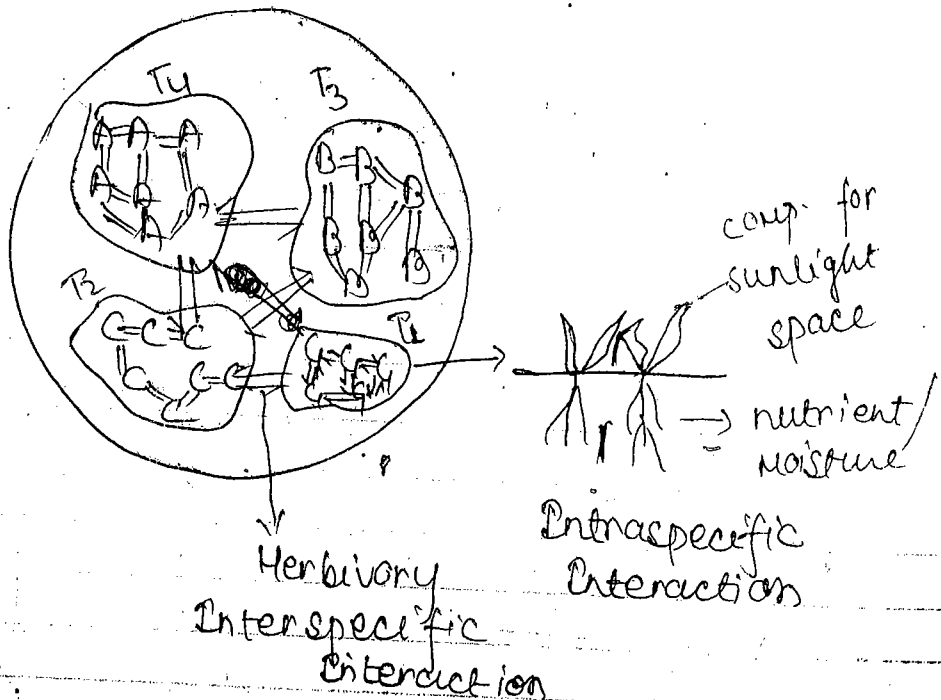 T4
T3
A A A
A A A
A
B B
B
B B
B B
T2
C C C
C C C
C
T1
comp. for
sunlight
space
→ nutrient/
moisture
Intraspecific
Interaction
Herbivory
Interspecific
Interaction